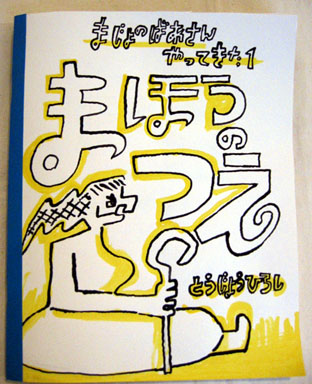 まじょのばあさん
やってきた1
まほうの
つえ
とうじょうひろし